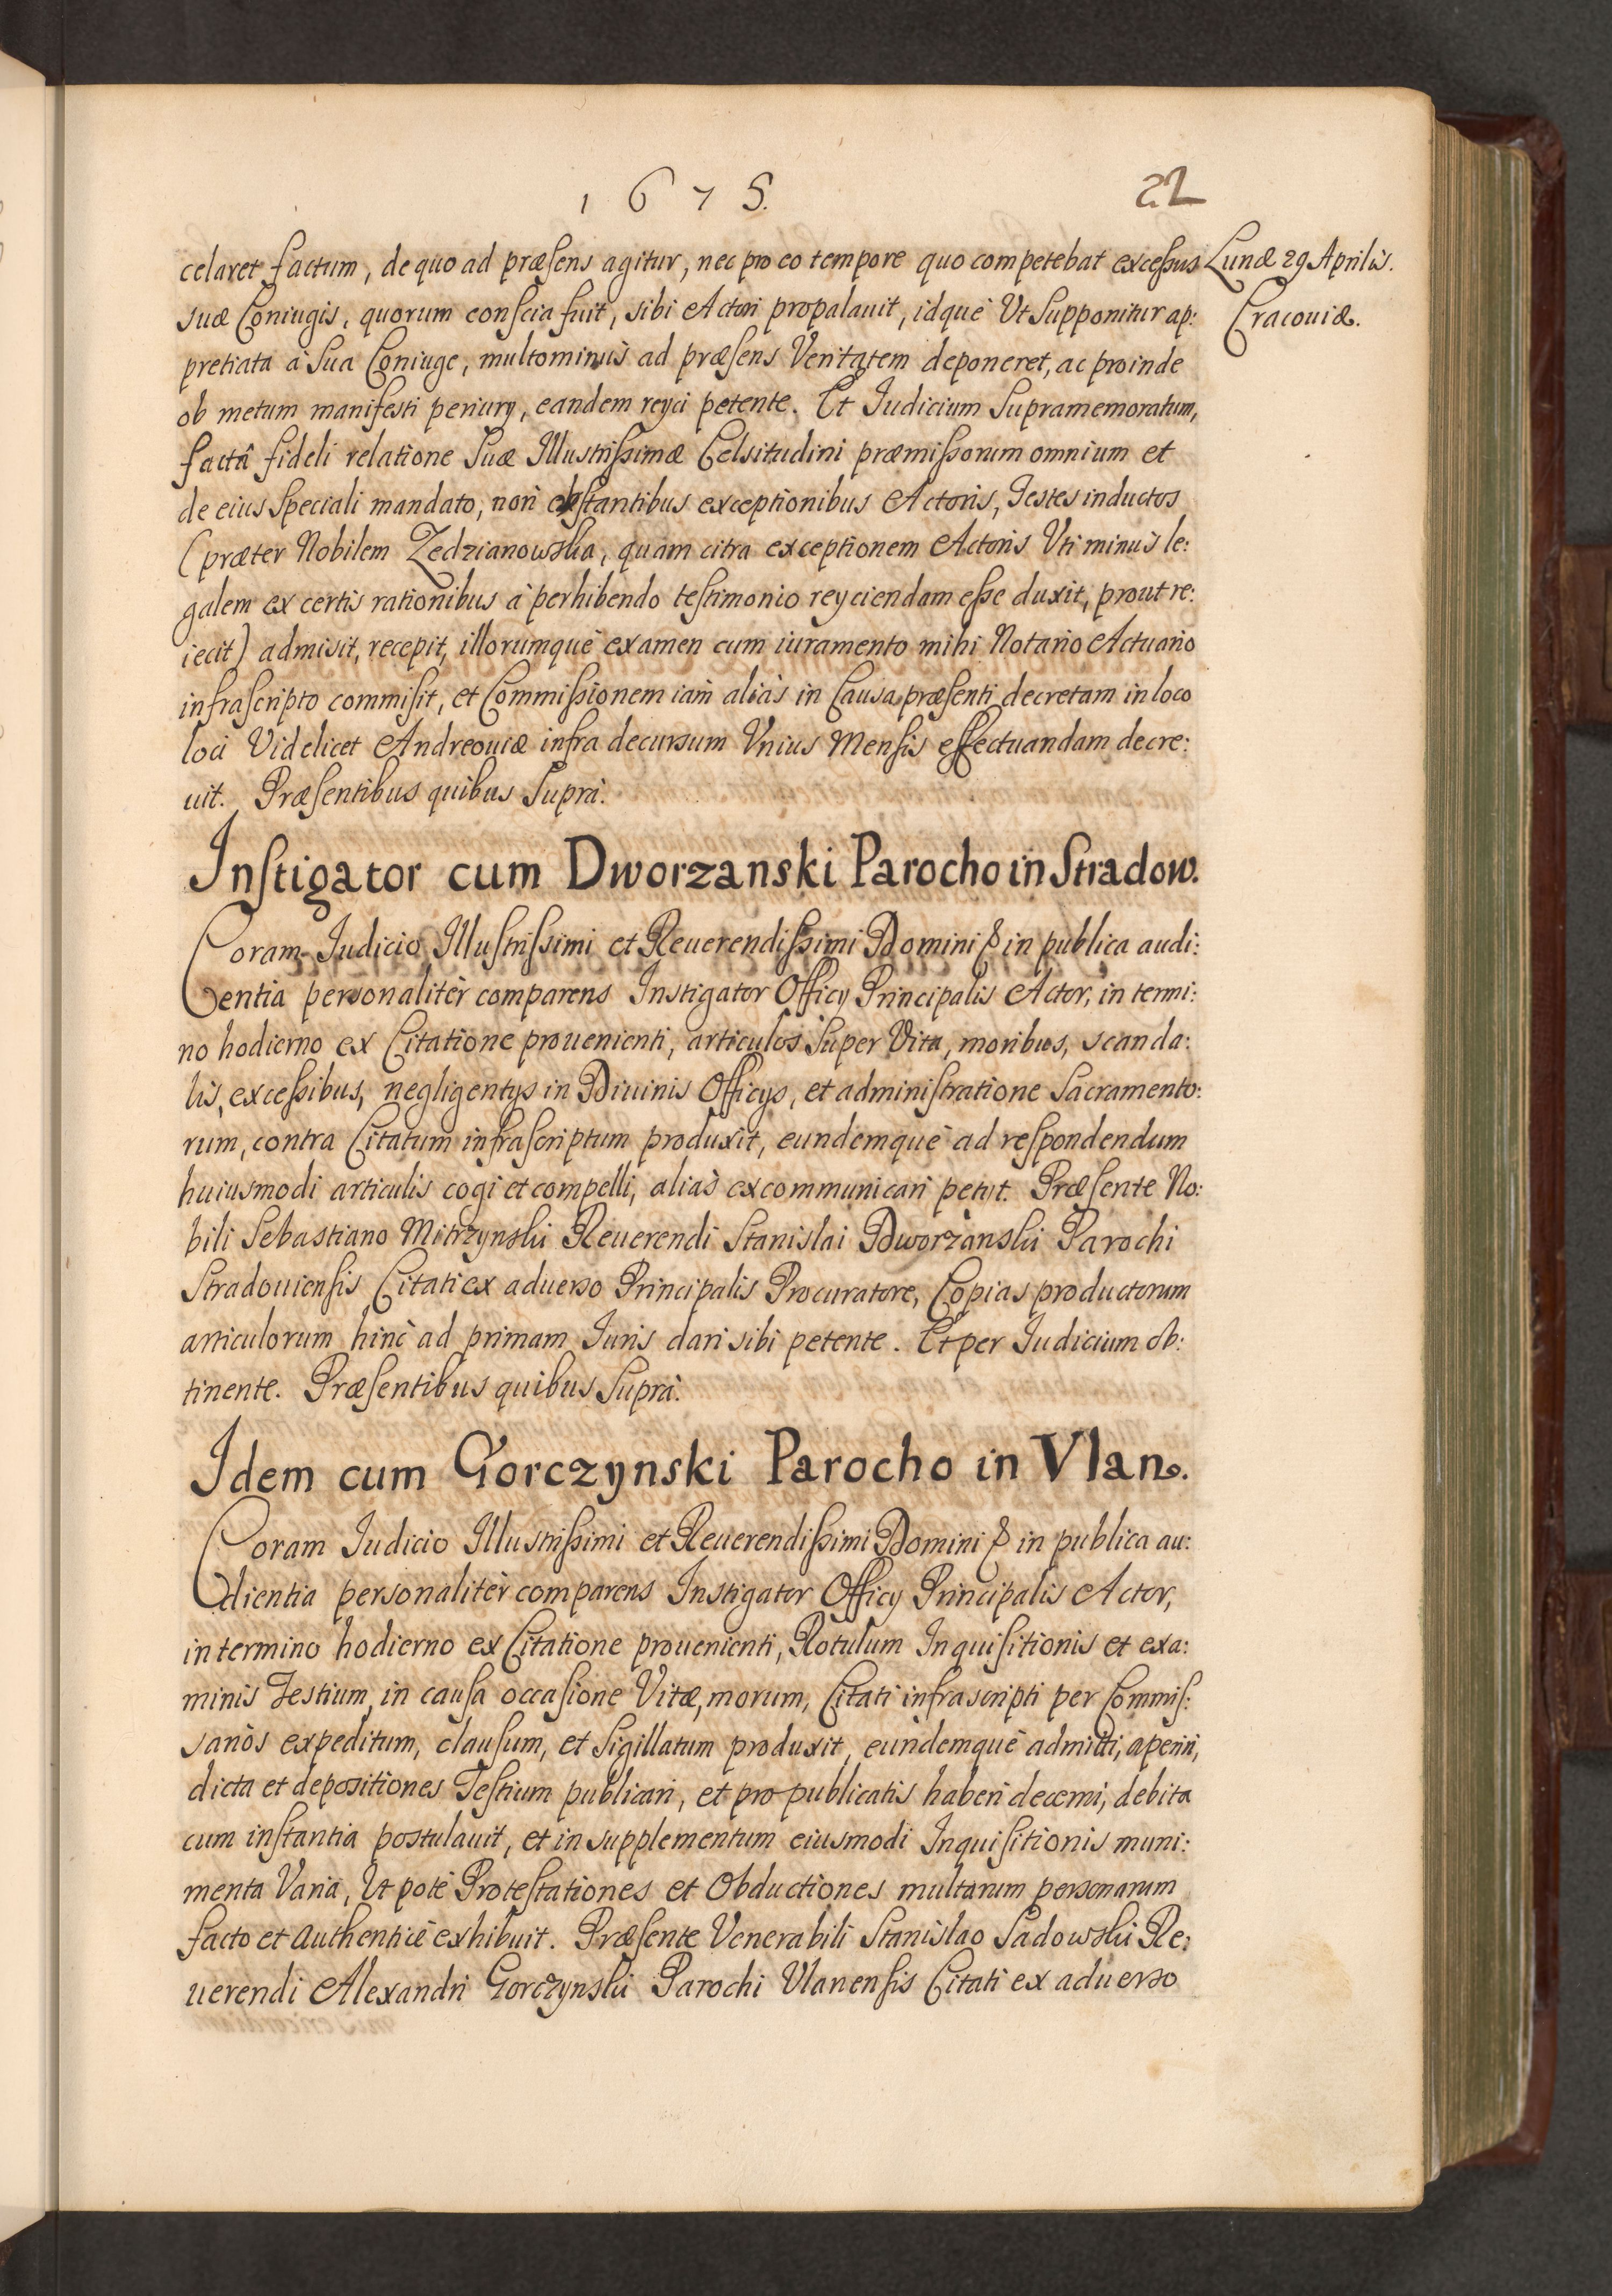 1675.
22
celaret factum, de quo ad præsens agitur, nec pro eo tempore quo competebat excessus
Lunæ 29 Aprilis.
Cracouiæ.
suæ Coniugis, quorum conscia fuit, sibi Actori propalauit, idquè Vt supponitur ap:
pretiata à sua Coniuge, multominùs ad præsens Veritatem deponeret, ac proinde
ob metum manifesti periurij, eandem reyci petente. Et Iudicium supramemoratum,
factâ fideli relatione Suæ Illustrissimæ Celsitudini præmissorum omnium et
de eius speciali mandato, non obstantibus exceptionibus Actoris, Testes inductos
(præter Nobilem Zedzianowska, quam citra exceptionem Actoris Vti minus le:
galem ex certis rationibus à perhibendo testimonio reyciendam esse duxit, prout re:
iecit) admisit, recepit, illorumquè examen cum iuramento mihi Notario Actuario
infrascripto commisit, et Commissionem iam aliàs in Causa præsenti decretam in loco
loci Videlicet Andreouiæ infra decursum Vnius Mensis effectuandam decre:
uit. Præsentibus quibus suprà.
Instigator cum Dworzanski Parocho in Stradow.
Coram Iudicio Illustrissimi et Reuerendissimi Domini & in publica audi:
entia personalitèr comparens Instigator Officy Principalis Actor, in termi:
no hodierno ex Citatione prouenienti, articulos super Vita, moribus, scanda:
lis, excessibus, negligentys in Diuinis Officys, et administratione Sacramento:
rum, contra Citatum infrascriptum produxit, eundemquè ad respondendum
huiusmodi articulis cogi et compelli, aliàs excommunicari petijt. Præsente No:
bili Sebastiano Mitrzynski Reuerendi Stanislai Dworzanski Parochi
Stradouiensis Citati ex aduerso Principalis Procuratore, Copias productorum
articulorum hinc ad primam Iuris dari sibi petente. Et per Iudicium ob:
tinente. Præsentibus quibus Suprà.
Idem cum Gorczynski Parocho in Vlan.
Coram Iudicio Illustrissimi et Reuerendissimi Domini & in publica au:
dientia personalitèr comparens Instigator Officy Principalis Actor,
in termino hodierno ex Citatione prouenienti, Rotulum Inquisitionis et exa:
minis Testium in causa occasione Vitæ, morum, Citati infrascripti per Commis:
sarios expeditum, clausum, et sigillatum produxit, eundemquè admitti, aperiri,
dicta et depositiones Testium publicari, et pro publicatis haberi decerni, debita
cum instantia postulauit, et in supplementum eiusmodi Inquisitionis muni:
menta Varia, Ut potè Protestationes et Obductiones multarum personarum
facto et authenticè exhibuit. Præsente Venerabili Stanislao Sadowski Re:
uerendi Alexandri Gorczynski Parochi Vlanensis Citati ex aduerso